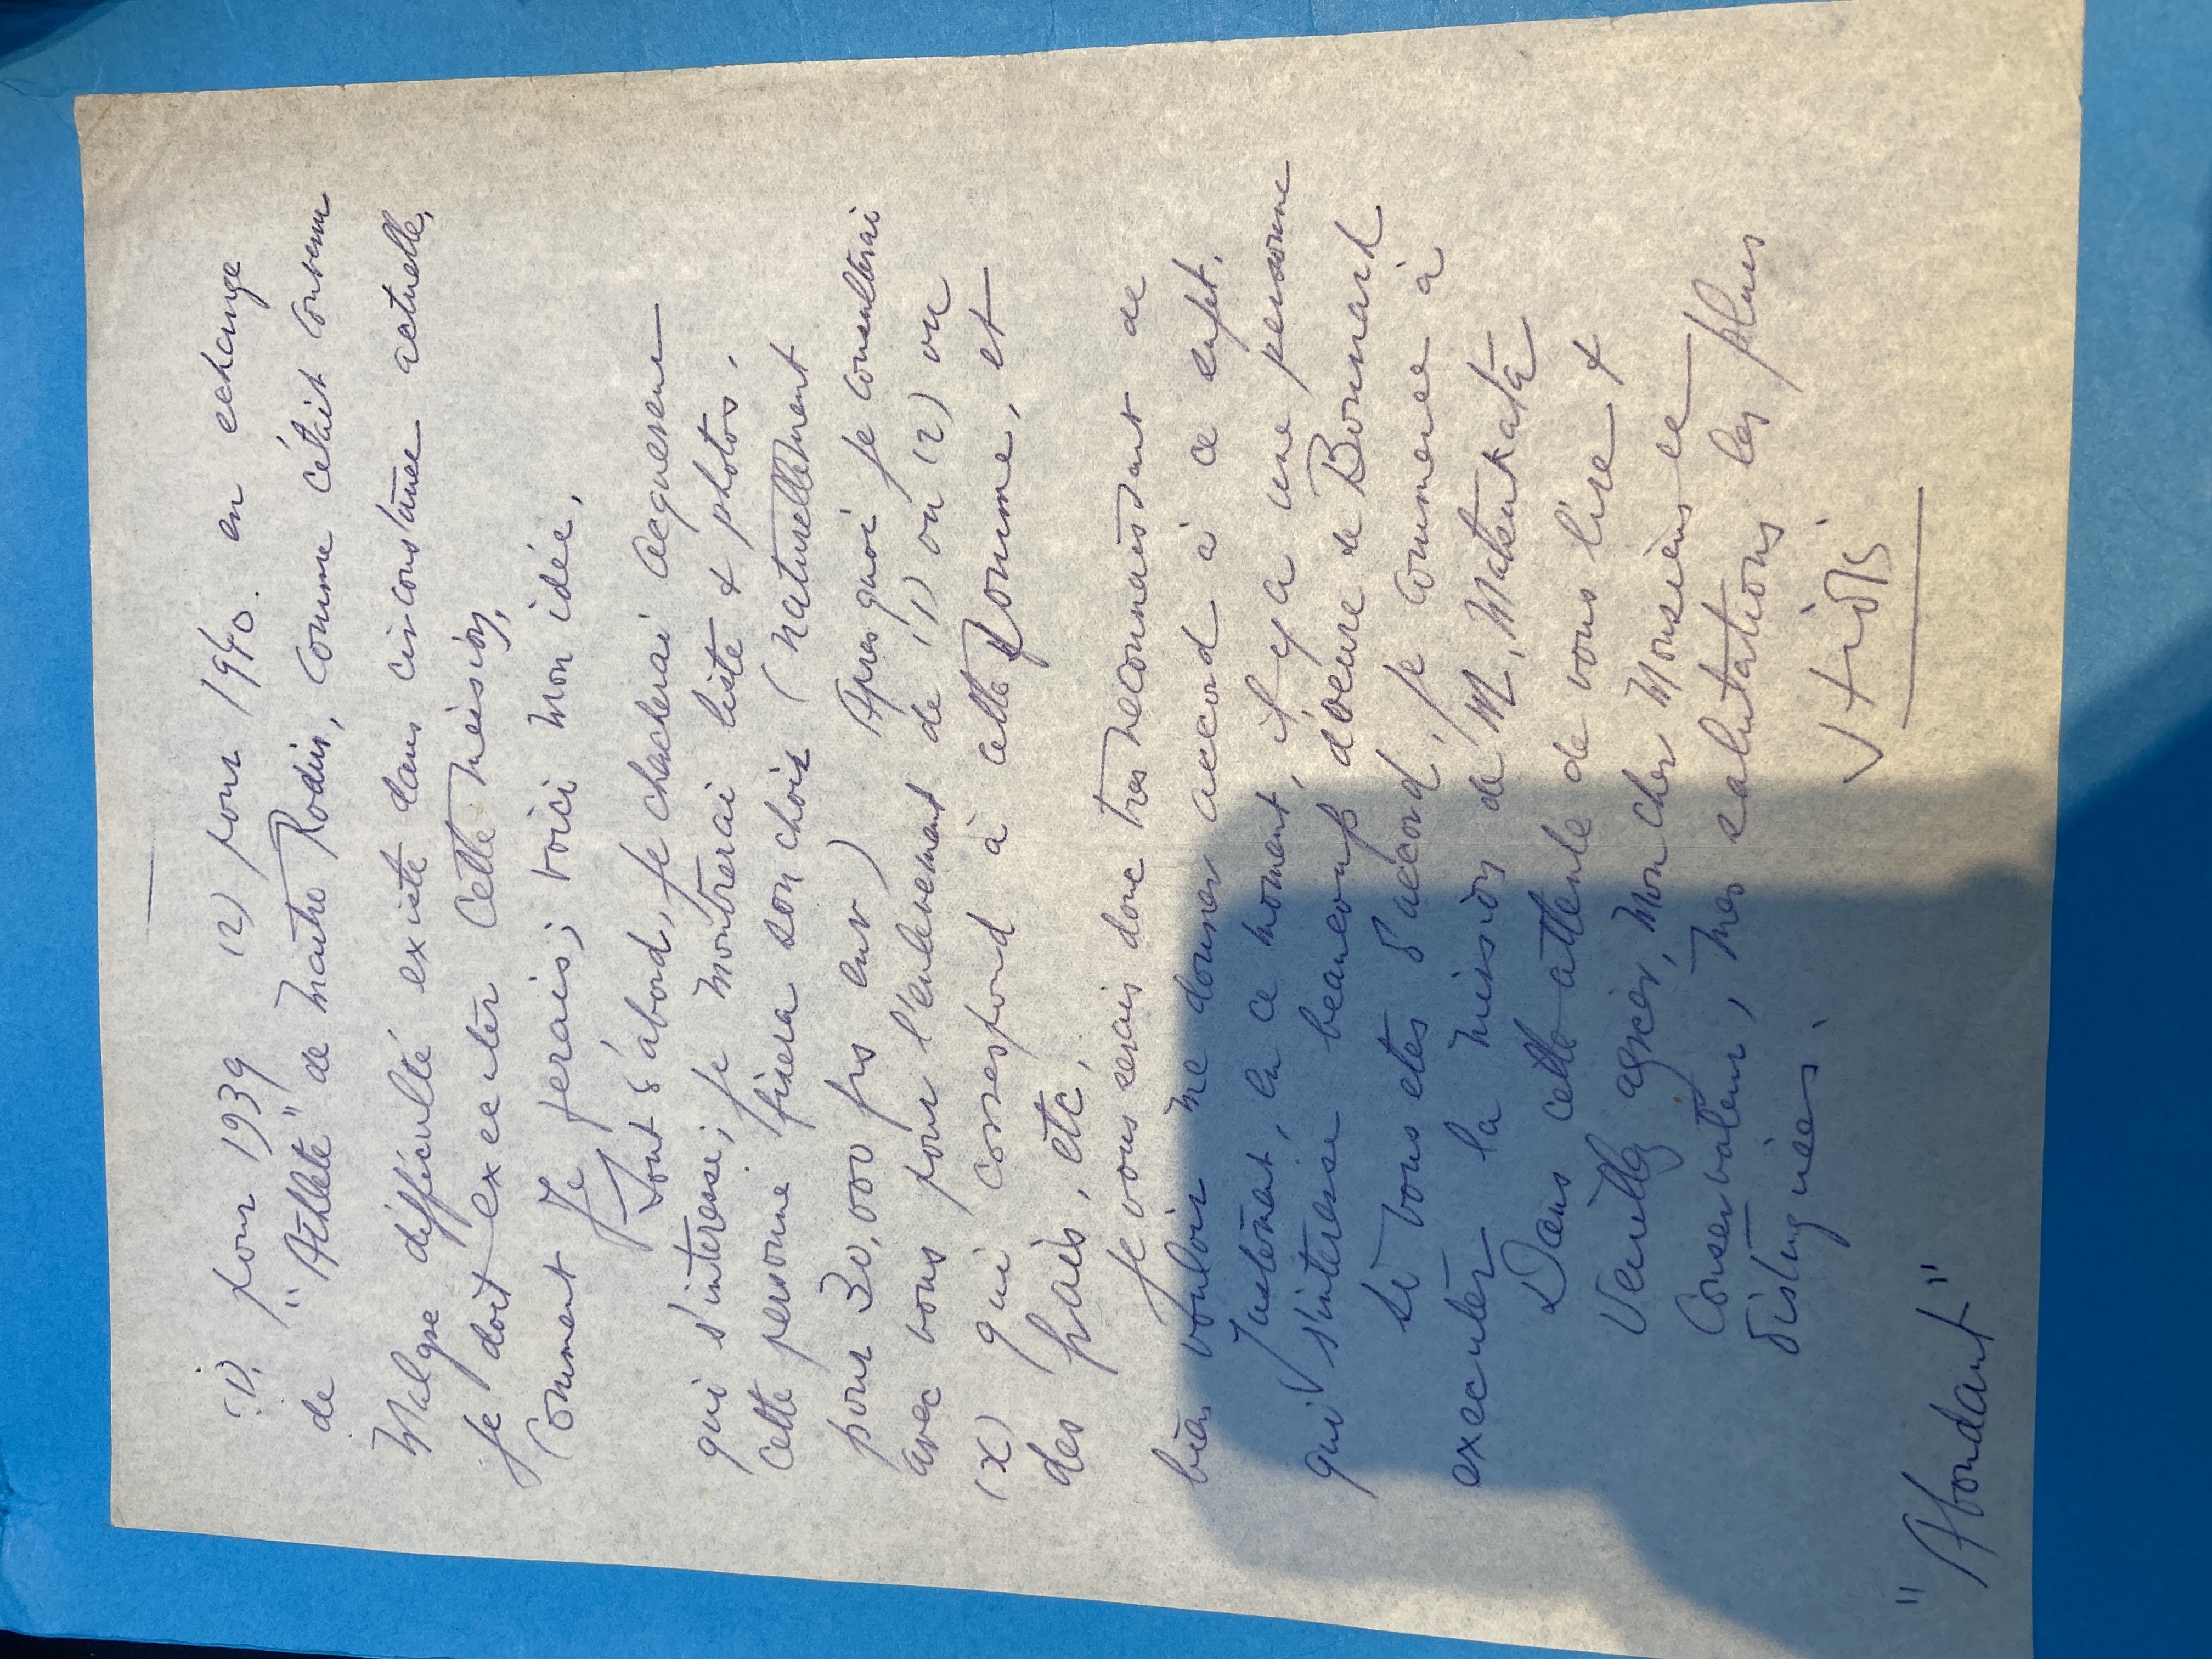 (1). pour 1939 (2) pour 1940. en echange
de "Athlete" de maitre Rodin, comme c'était convenu
Malgre difficulté existe dans circonstance actuelle,
je doit executer cette mission,
Comment Je ferais; voici mon idée,
Tout d'abord, je chercherai acquereur
qui s'interesse; je montrerai liste & photos.
cette personne fixera son choix (naturellement
pour 30,000 frs env) Apres quoi je consulterai
avec vous pour l'enlevement de (1) ou (2) ou
(x) qui correspond à cette somme, et
des frais, etc,
Je vous serais donc tres reconnaissant de
bien vouloir me donner accord à ce sujet.
Justement, en ce moment, il y a une personne
qui s'interesse beaucoup d'oeuvre de Bonnard
si vous etes d'accord, je commence à
executer la mission de M. Matsukata
Dans cette attente de vous lire &
Veuillez agreer, Mon cher Monsieur le
Conservateur, mes salutations les plus
distinguées.
"Abondant"